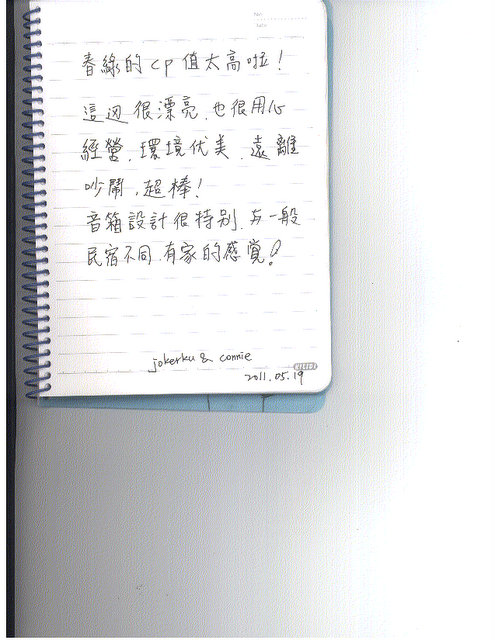 春綠的cp值太高啦!
這边很漂亮,也很用心
經營,環境优美,遠離
吵鬧,超棒!
音箱設計很特別,与一般
民宿不同,有家的感覺!
jokerku & connie
2011.05.19